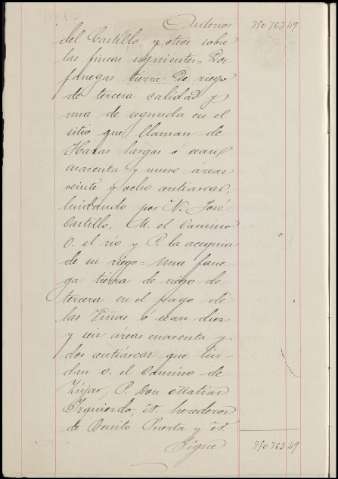 Antonio 350763 49
del Castillo y otros sobre
las fincas siguientes. Dos
fanegas tierra de riego
de tercera calidad y
una de segunda en el
sitio que llaman de
Hazas largas ó sean
y nueve áreas
veinte y ocho centiáreas,
lindando por N. José
Castillo, M. el Camino
O. el rio y P. la acequia
de su riego = Una fane-
ga tierra de riego de
tercera en el pago de
las Viñas ó sean diez
y seis áreas cuarenta y
dos centiáreas que lin-
dan O. el Camino de
P. Don Matias
Izquierdo, N. herederos
de Benito Puerta y M.
Sigue 350763 49